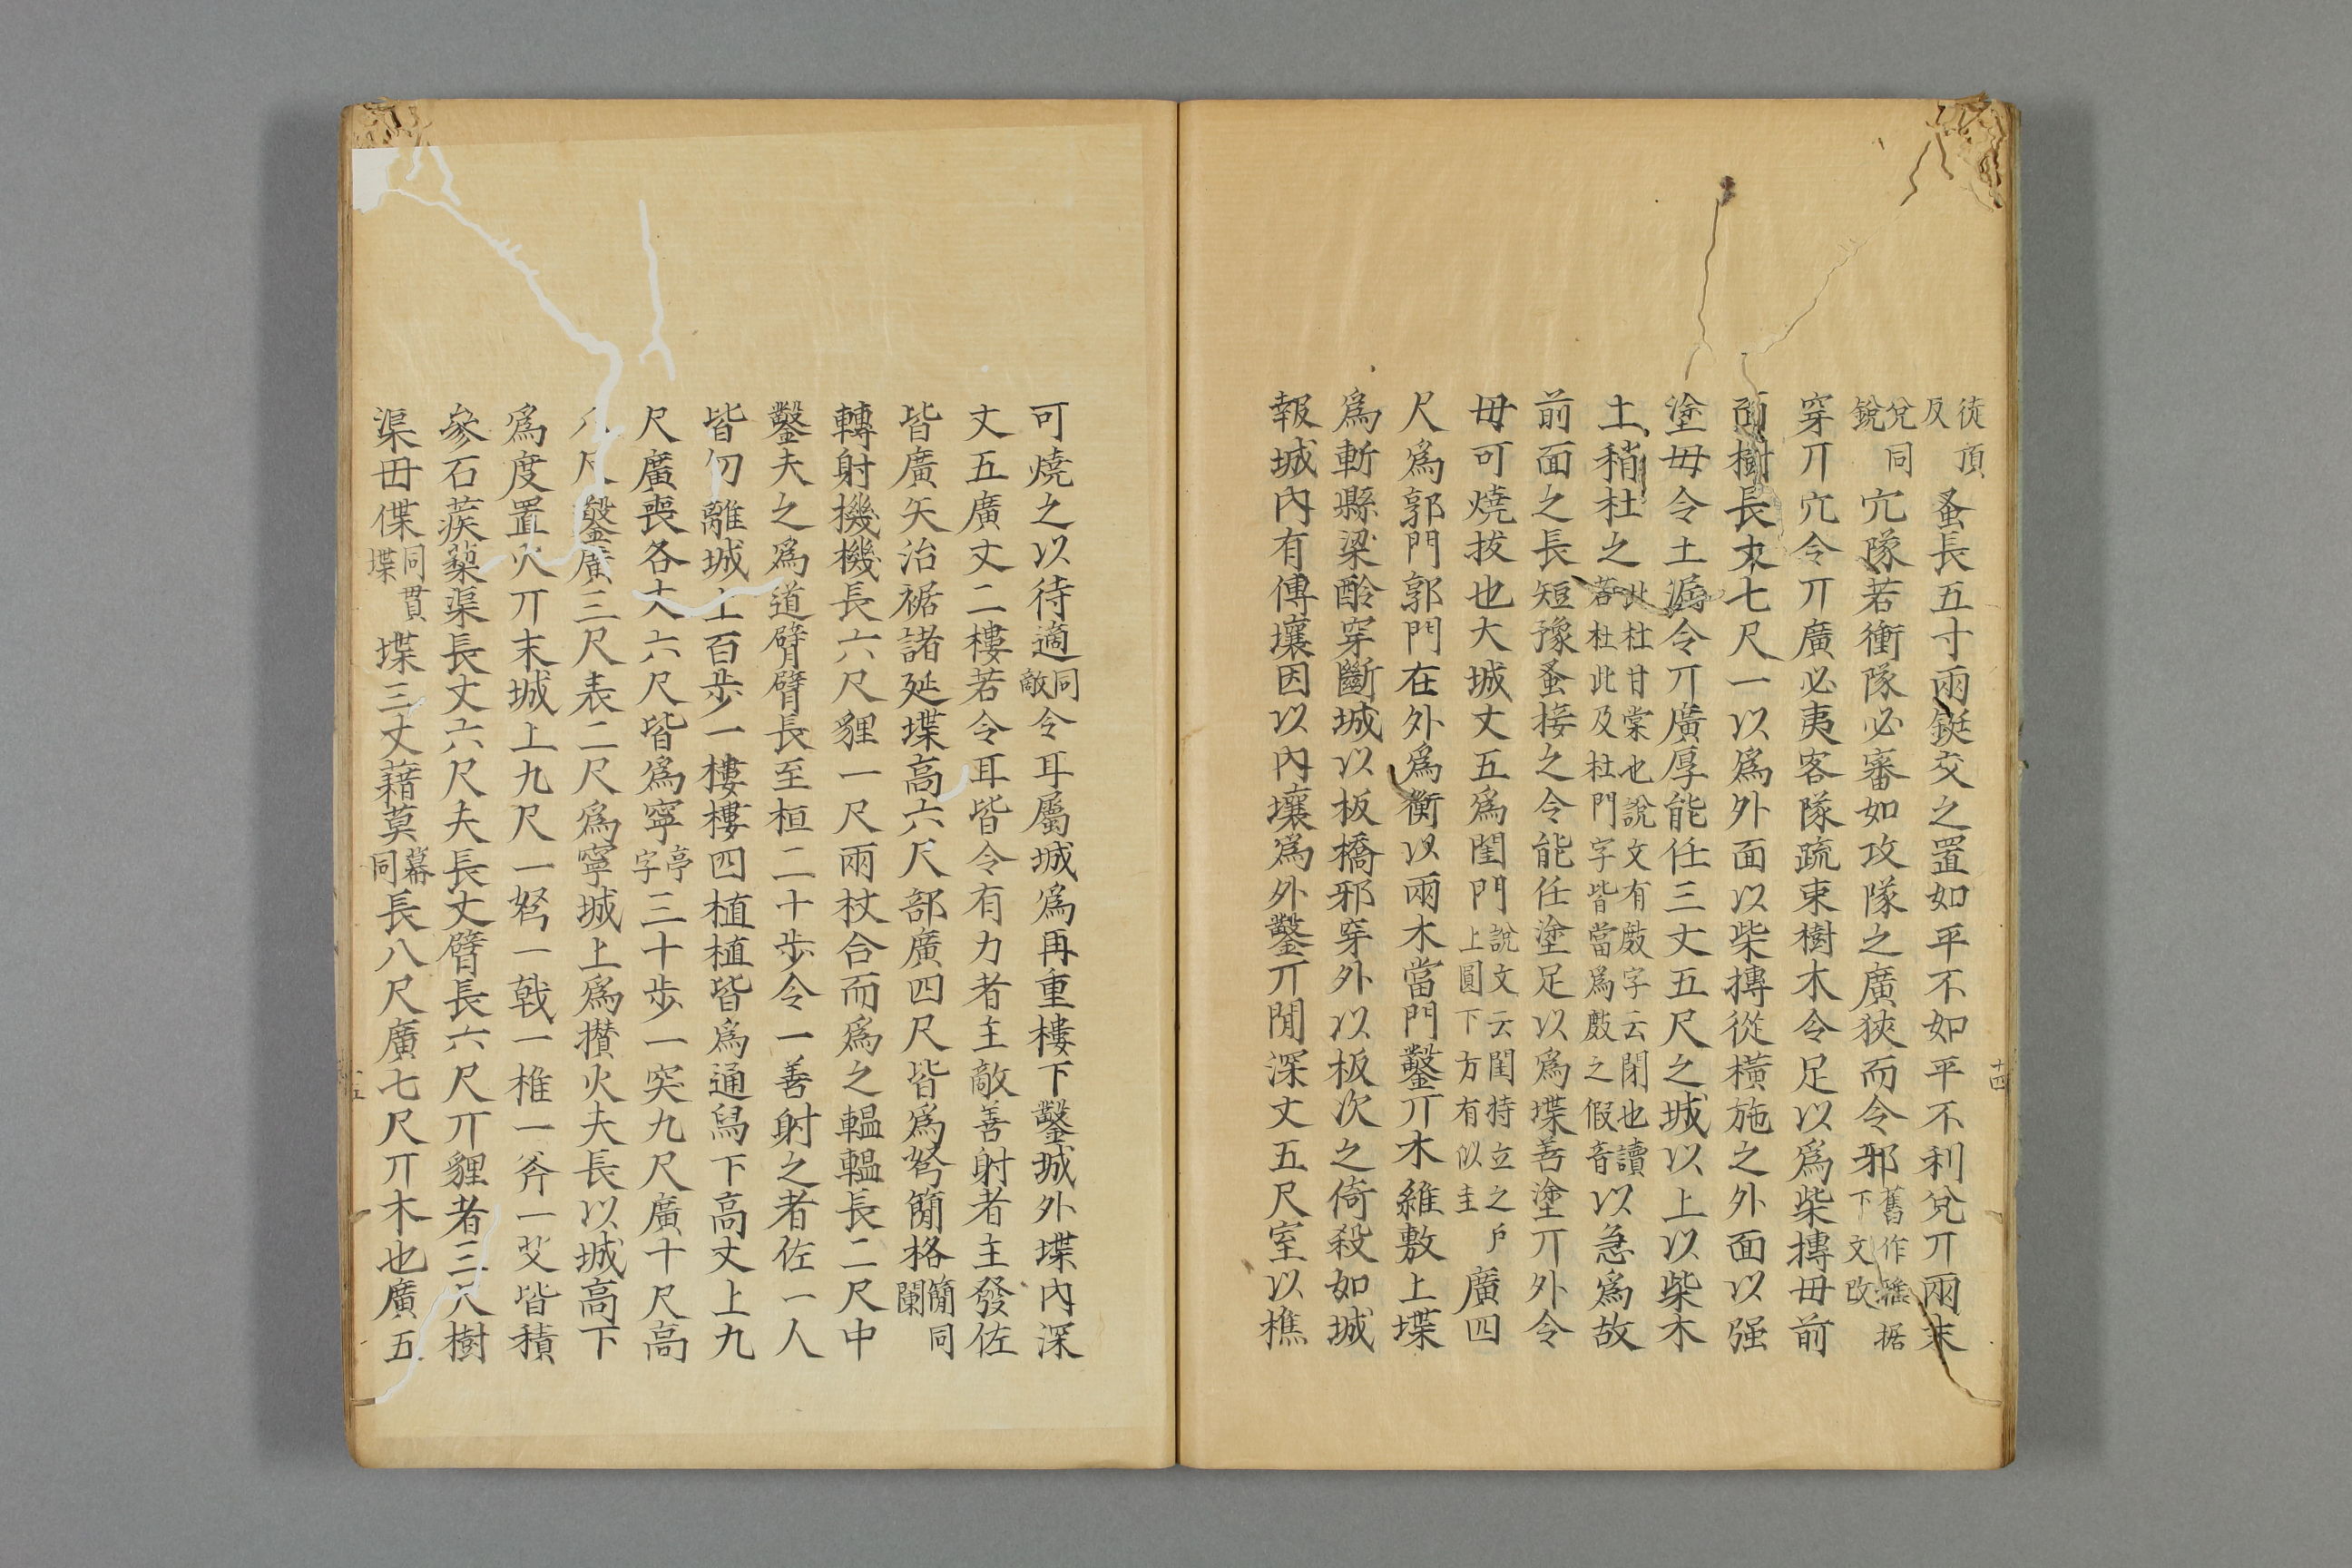 徒頂反蚤長五寸兩鋌交之置如平不如平不利兊丌兩末
兊同銳宂隊若衝隊必審如攻隊之廣狹而令邪舊作 据下文改
穿丌宂令丌廣必夷客隊疏束樹木令足以爲柴摶毋前
面樹長丈七尺一以爲外面以柴摶從橫施之外面以强
塗毋令土漏令丌廣厚能任三丈五尺之城以上以柴木
土稍杜之此杜甘棠也說文有㪏字云閉也讀若杜此及杜門字皆當爲㪏之假音以急爲故
前面之長短豫蚤接之令能任塗足以爲堞善塗丌外令
毋可燒拔也大城丈五爲閨門說文云閨持立之戶上圓下方有似圭廣四
尺爲郭門郭門在外爲衡以兩木當門鑿丌木維敷上堞
爲斬縣梁酓穿斷城以板橋邪穿外以板次之倚殺如城
報城內有傅壤因以內壤爲外鑿丌閒深丈五尺室以樵
十四
可燒之以待適同敵令耳屬城爲再重樓下鑿城外堞內深
丈五廣丈二樓若令耳皆令有力者主敵善射者主發佐
皆廣矢治裾諸延堞高六尺部廣四尺皆爲弩簡格簡同闌
轉射機機長六尺貍一尺兩杖合而爲之轀轀長二尺中
鑿夫之爲道臂臂長至桓二十步令一善射之者佐一人
皆勿離城上百步一樓樓四植植皆爲通舄下高丈上九
尺廣喪各大六尺皆爲寧亭字三十步一突九尺廣十尺高
八尺鑿廣三尺表二尺爲寧城上爲攢火夫長以城高下
爲度置火丌末城上九尺一弩一戟一椎一斧一艾皆積
參石蒺藜渠長丈六尺夫長丈臂長六尺丌貍者三尺樹
渠毋偞同貫堞堞三丈藉莫幕同長八尺廣七尺丌木也廣五